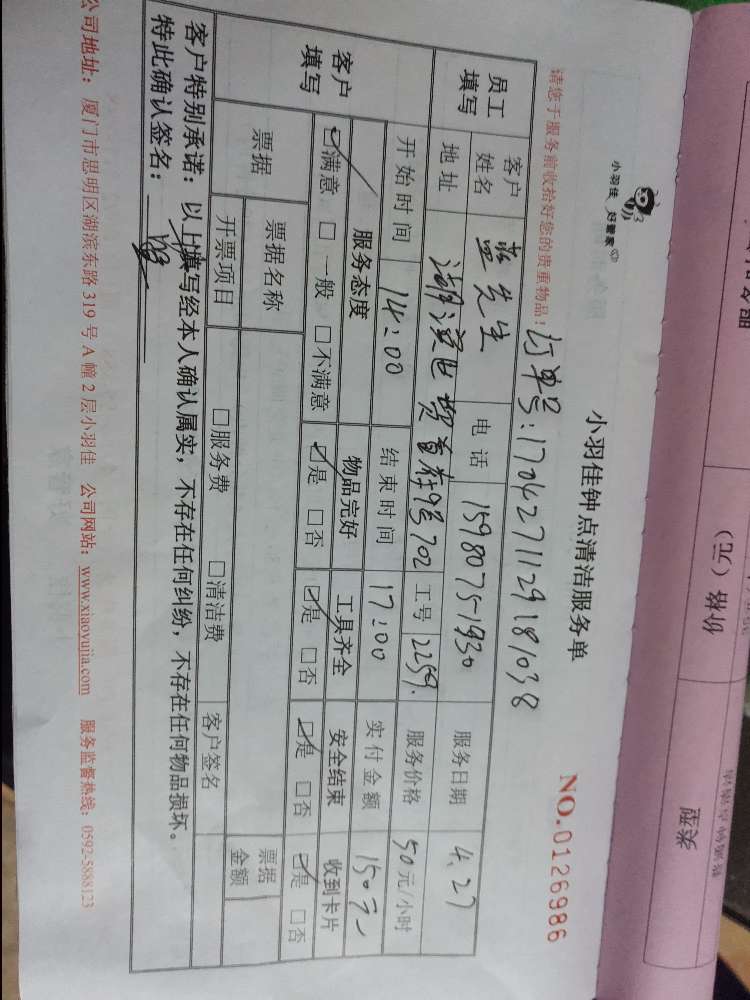 小羽佳 好管家
小羽佳钟点清洁服务单
NO.0126986
请您于服务前收拾好您的贵重物品!
订单号:1704271129181038
员工填写 客户姓名 先生 电话 1598075-1930 服务日期 4.27
地址 702 工号 2259. 服务价格 50元/小时
客户填写 开始时间 14:00 结束时间 17:00 实付金额 150元
服务态度 物品完好 工具齐全 安全结束 收到卡片
☑满意 □一般 □不满意 ☑是 □否 ☑是 □否 ☑是 □否 ☑是 □否
票据 票据名称 票据金额
开票项目 □服务费 □清洁费 客户签名
客户特别承诺:以上填写经本人确认属实,不存在任何纠纷,不存在任何物品损坏。
特此确认签名:
公司地址:厦门市思明区湖滨东路319号A幢2层小羽佳 公司网站:www.xiaoyujia.com 服务监督热线:0592-5888123
价格(元)